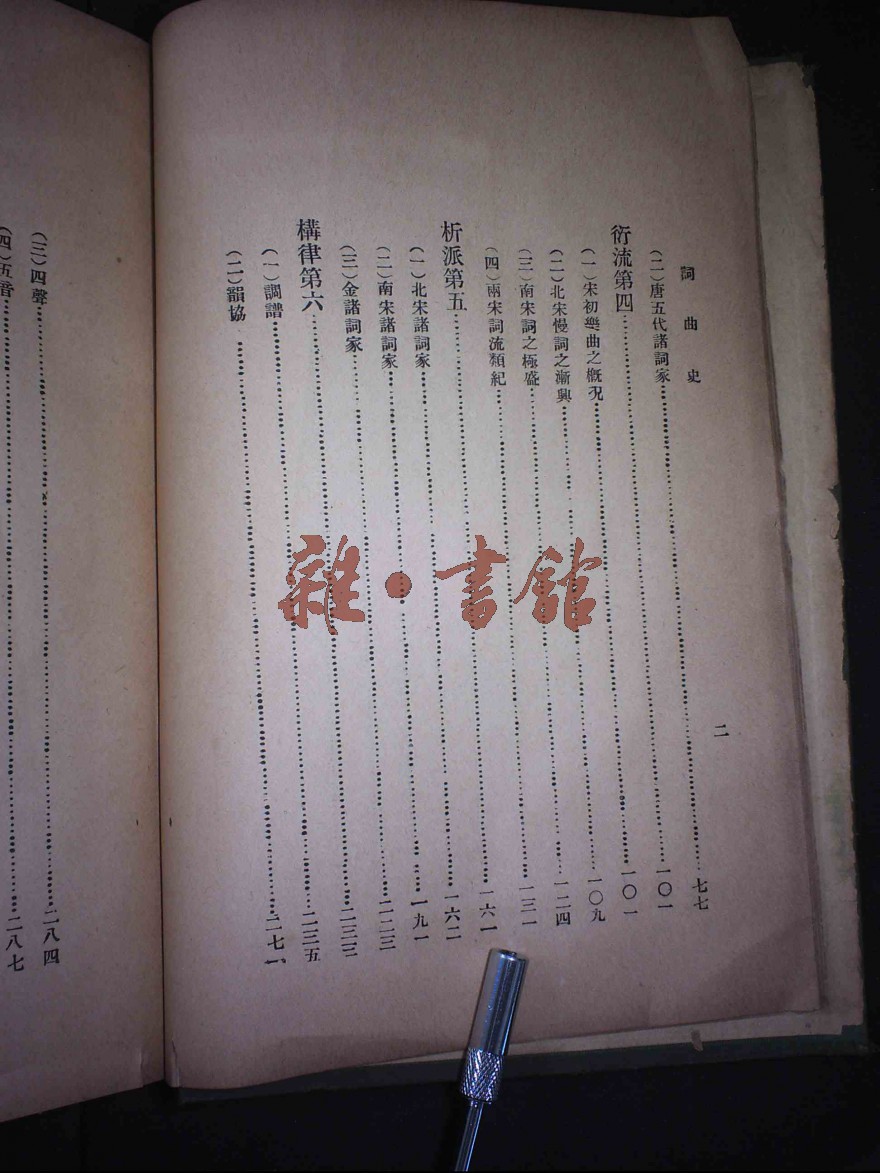 詞曲史
二
(二)唐五代諸詞家……七七
衍流第四……一〇一
(一)宋初樂曲之概況……一〇一
(二)北宋慢詞之漸興……一〇九
(三)南宋詞之極盛……一二四
(四)兩宋詞流類紀……一三一
析派第五……一六一
(一)北宋諸詞家……一六二
(二)南宋諸詞家……一九一
(三)金諸詞家……二一三
構律第六……二三三
(一)調譜……二三五
(二)韻協……二七一
(三)四聲……二八四
(四)五音……二八七
雜·書館